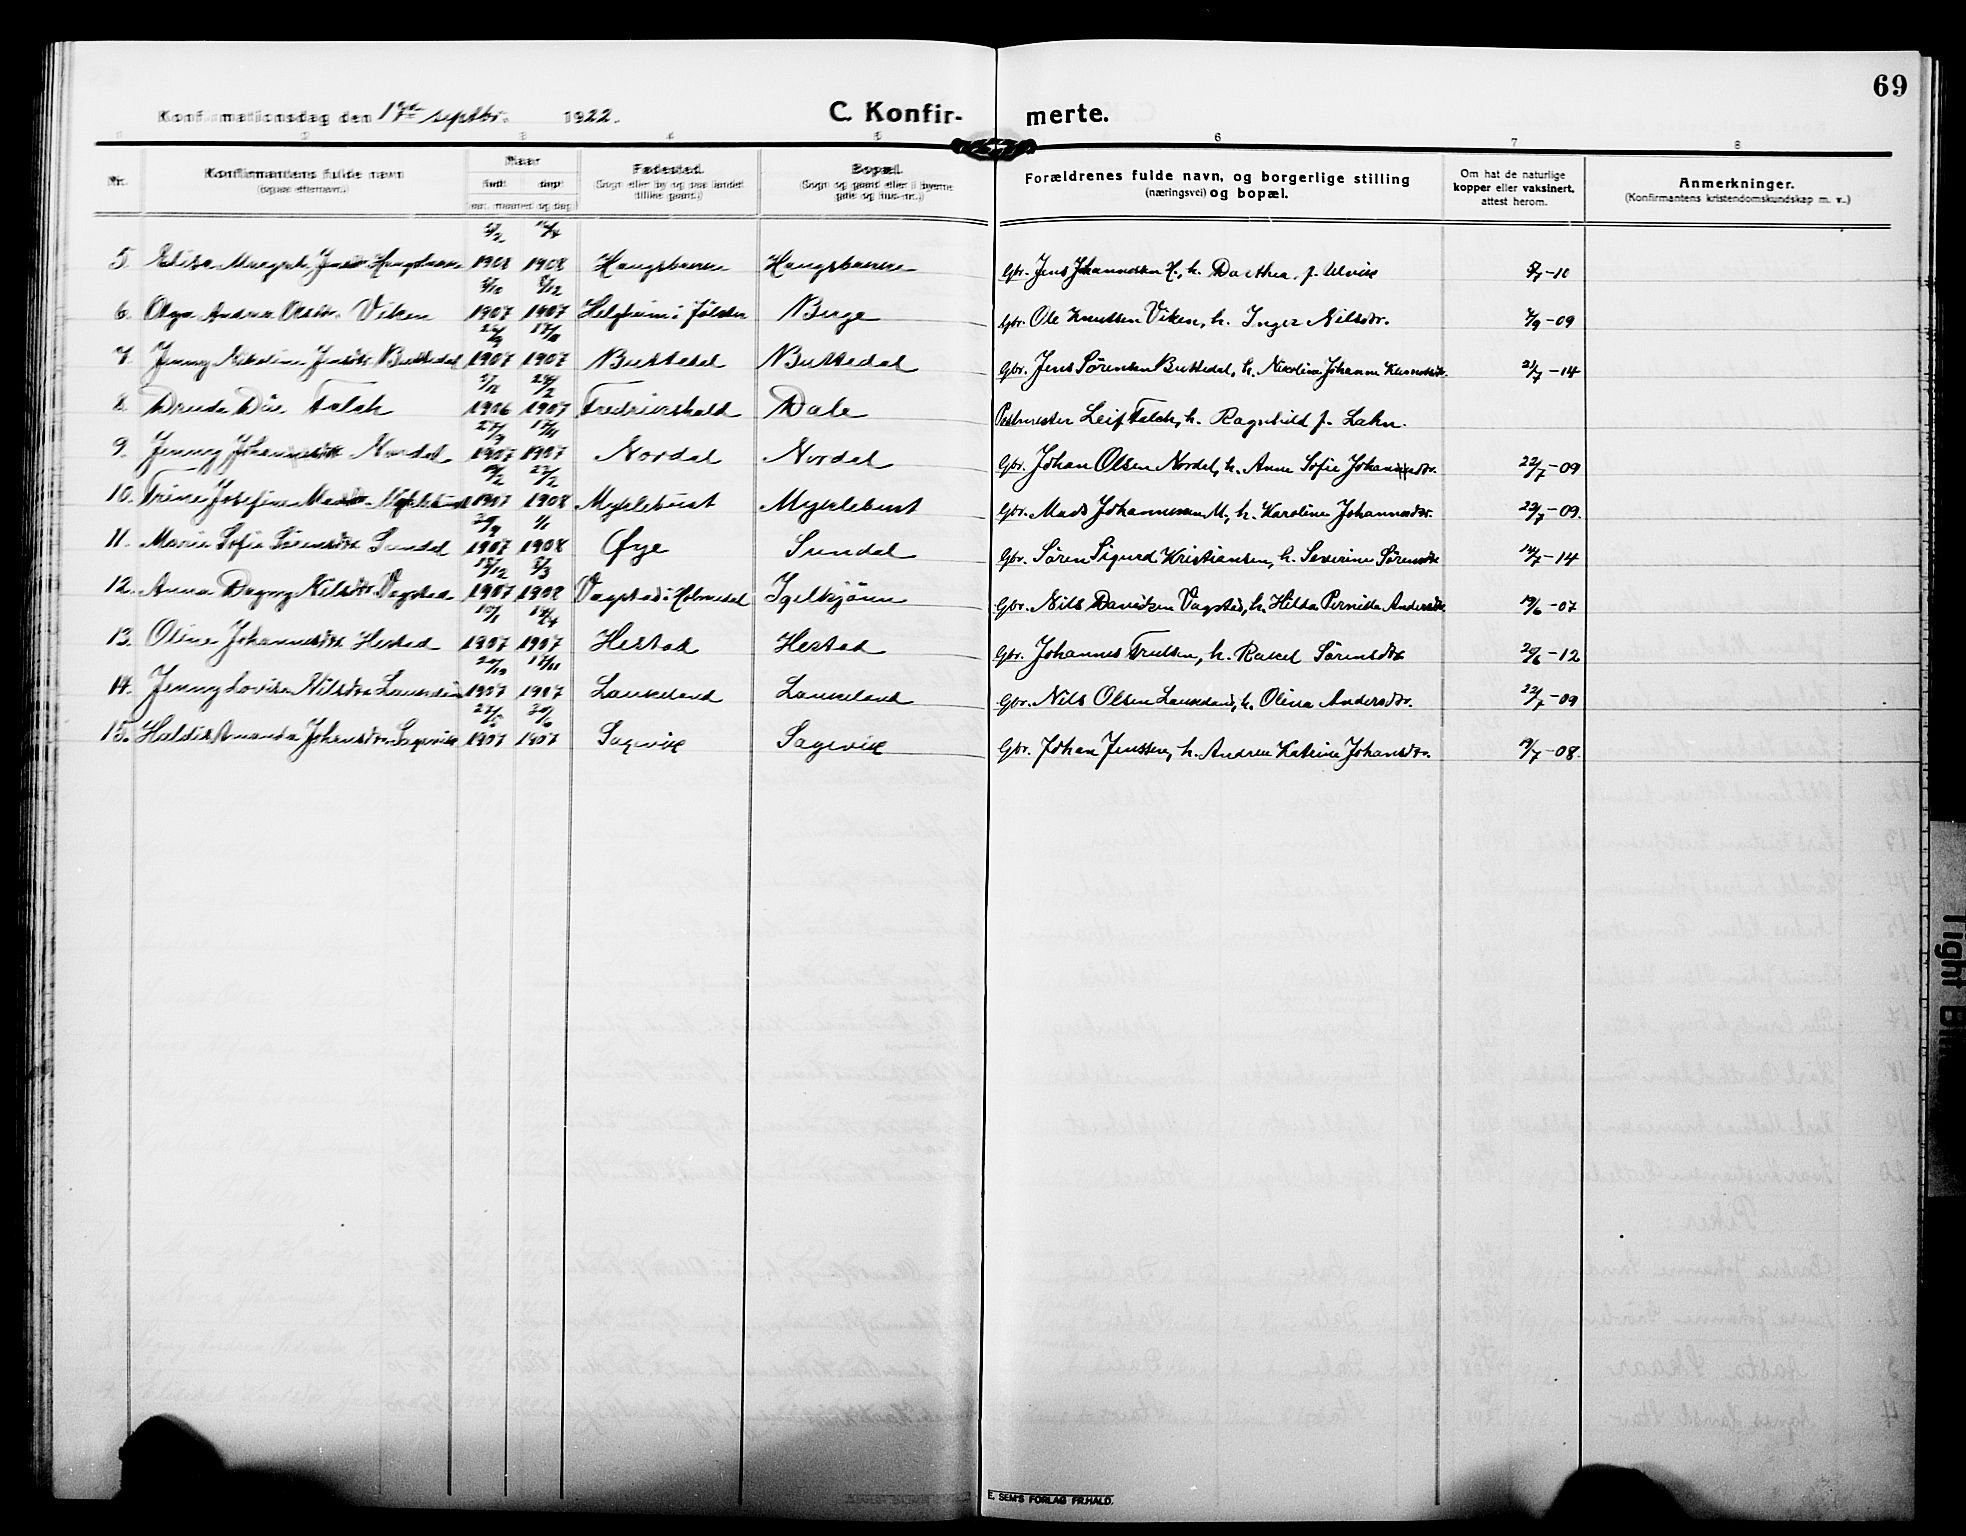 69
Konfirmationsdag den 17de septbr. 1922.
C. Konfir- merte.
1 2 3 4 5 6 7 8
Nr. Konfirmantens fulde navn (ogsaa efternavn.) Naar født døpt (aar, maaned og dag) Fødested. (Sogn eller by og paa landet tillike gaard.) Bopæl. (Sogn og gaard eller i byerne gate og hus-nr.) Forældrenes fulde navn, og borgerlige stilling (næringsvei) og bopæl. Om hat de naturlige kopper eller vaksinert, attest herom. Anmerkninger. (Konfirmantens kristendomskundskap m. v.)
5. Elisa Margrete 1908 1908 Gbr. Jens Johannessen H., h. Dorthea f. Ulvik -10
6. Olga Andrea Olsdtr. Viken 1907 1907 Helgheim i Jølster Berge Gbr. Ole Knutsen Viken, h. Inger Nilsdtr. 4/9-09
7. Jenny Nikoline Jensdtr. Buttedal 1907 1907 Buttedal Buttedal Gbr. Jens Sørensen Buttedal, h. Nikoline Johanne 21/7-14
8. Druda Due Falch 1906 1907 Fredrikshald Dale Postmester Leif Falch, h. Ragnhild f. Lahn.
9. Jenny Johannesdtr. Nordal 27/9 1907 1907 Nordal Nordal Gbr. Johan Olsen Nordal, h. Anne Sofie Johannesdtr. 22/7-09
10. Trine Josefine 1907 1908 Myklebust Myklebust Gbr. Mads Johannessen M., h. Karoline Johannesdtr. 22/7-09.
11. Marie Sofie Sørensdtr. Sundal 1907 1908 Øye Sundal Gbr. Søren Sigurd Kristiansen, h. Severine Sørensdtr. 14/7-14
12. Anna Dagny Nilsdtr. Vagstad 1907 1908 Vagstad i Holmedal Igelkjønn Gbr. Nils Davidsen Vagstad, h. Hilda Pernilla Andersdtr. 19/6-07
13. Oline Johannesdtr. Hestad 1907 1907 Hestad Hestad Gbr. Johannes Trulsen, h. Rakel Sørensdtr. 29/6-12
14. Jenny Lovise Nilsdtr. Laukeland 1907 1907 Laukeland Laukeland Gbr. Nils Olsen Laukeland, h. Olina Andersdtr. 22/7-09
15. Haldis Amanda Johansdtr. Sagevik 1907 1907 Sagevik Sagevik Gbr. Johan Jenssen, h. Andrea Katrine Johansdtr. 19/7-08.
E. SEM'S FORLAG FR.HALD.
Tight Bin